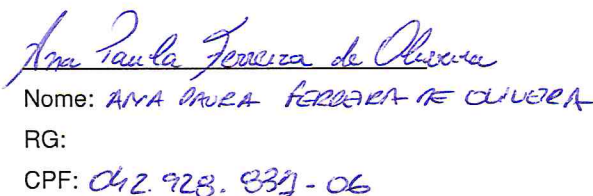 Ana Paula Ferreira de Oliveira
Nome: ANA PAULA FERREIRA DE OLIVEIRA
RG:
CPF: